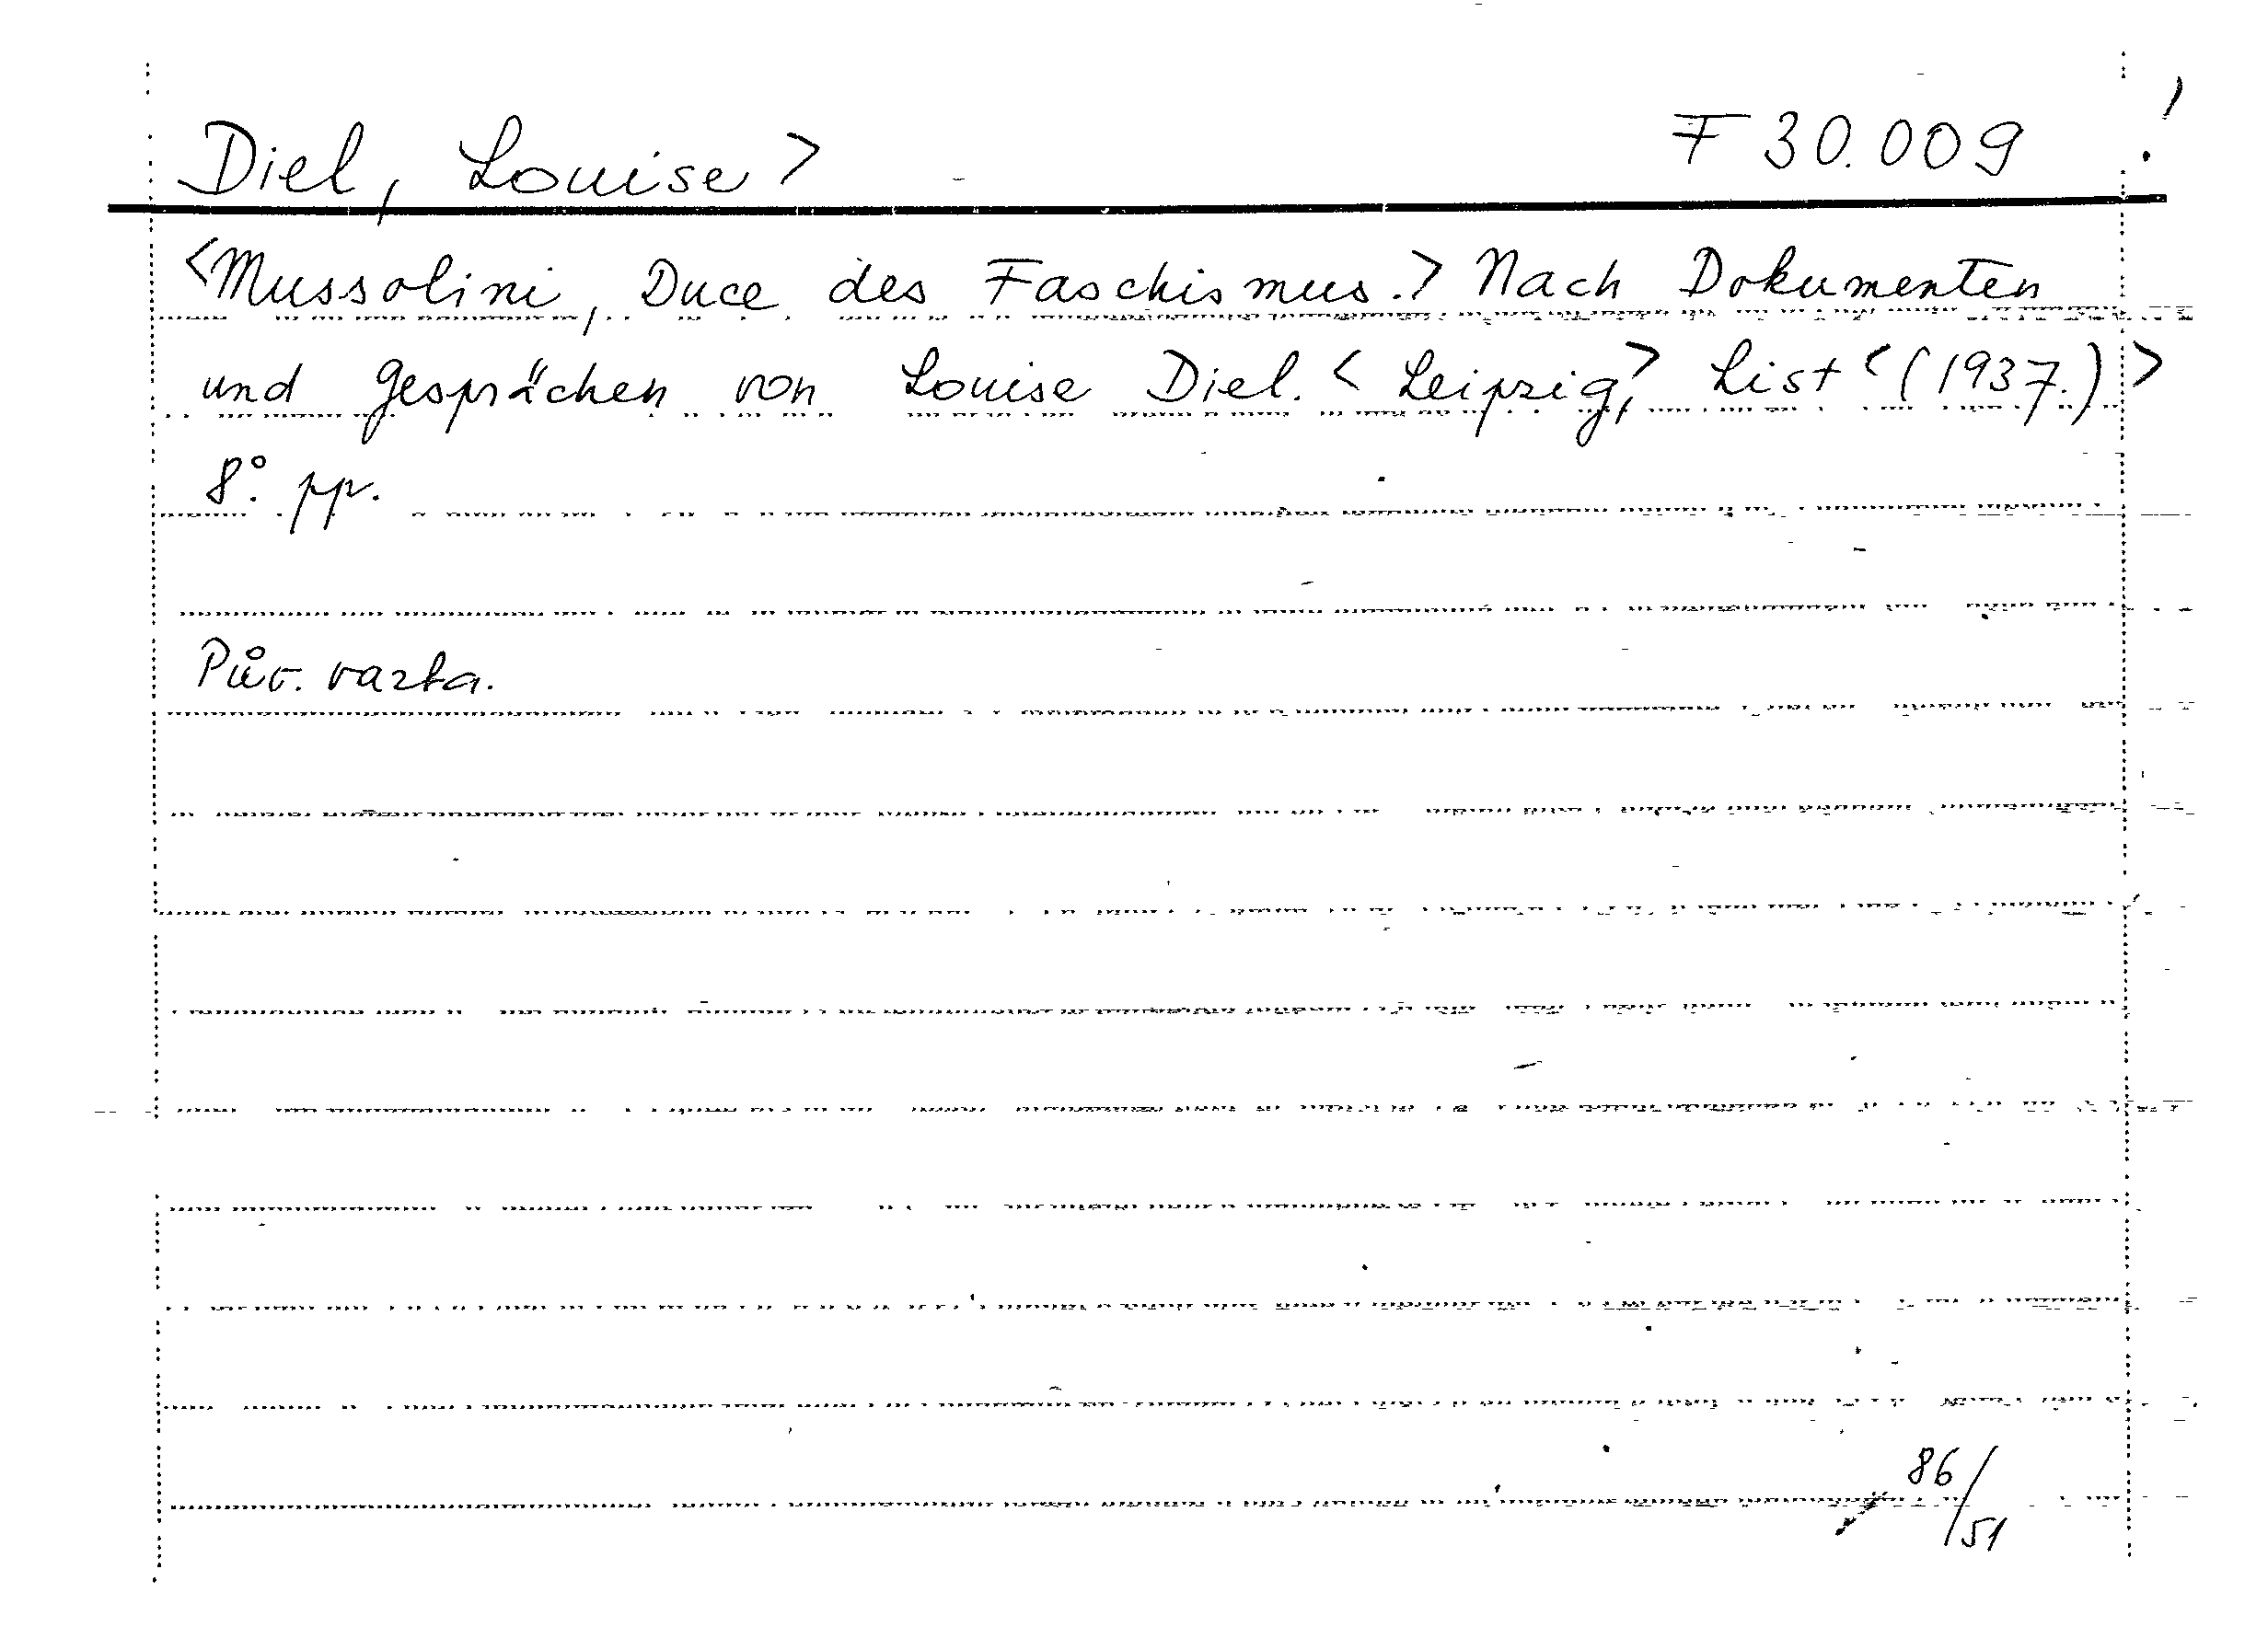 Diel, Louise> F 30.009 !
<Mussolini, Duce des Faschismus.> Nach Dokumenten
und Gesprächen von Louise Diel. <Leipzig,> List <(1937.)>
8°. pp.
Pův. vazba.
86/51